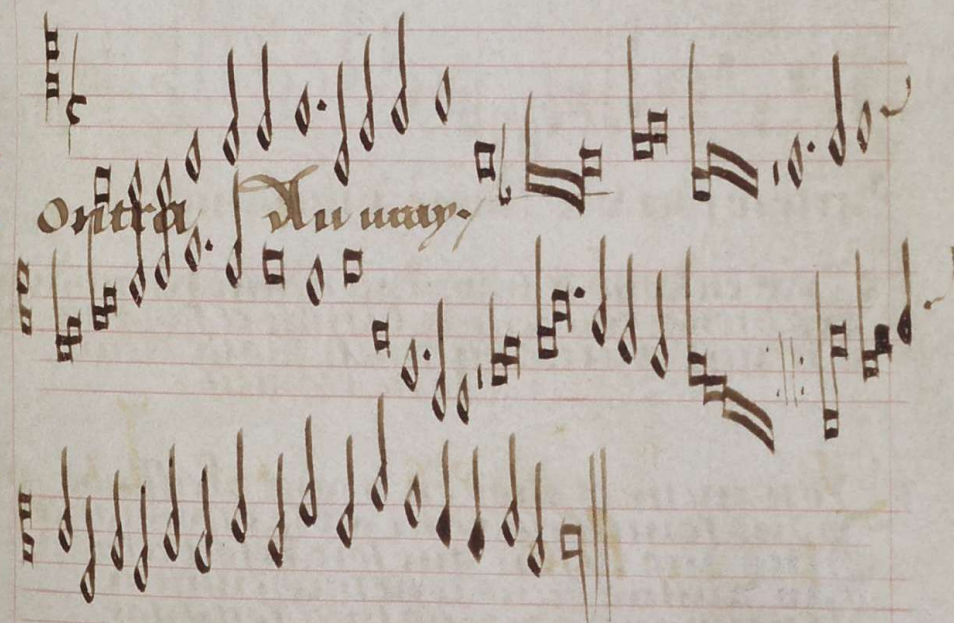 Ontra Au may.